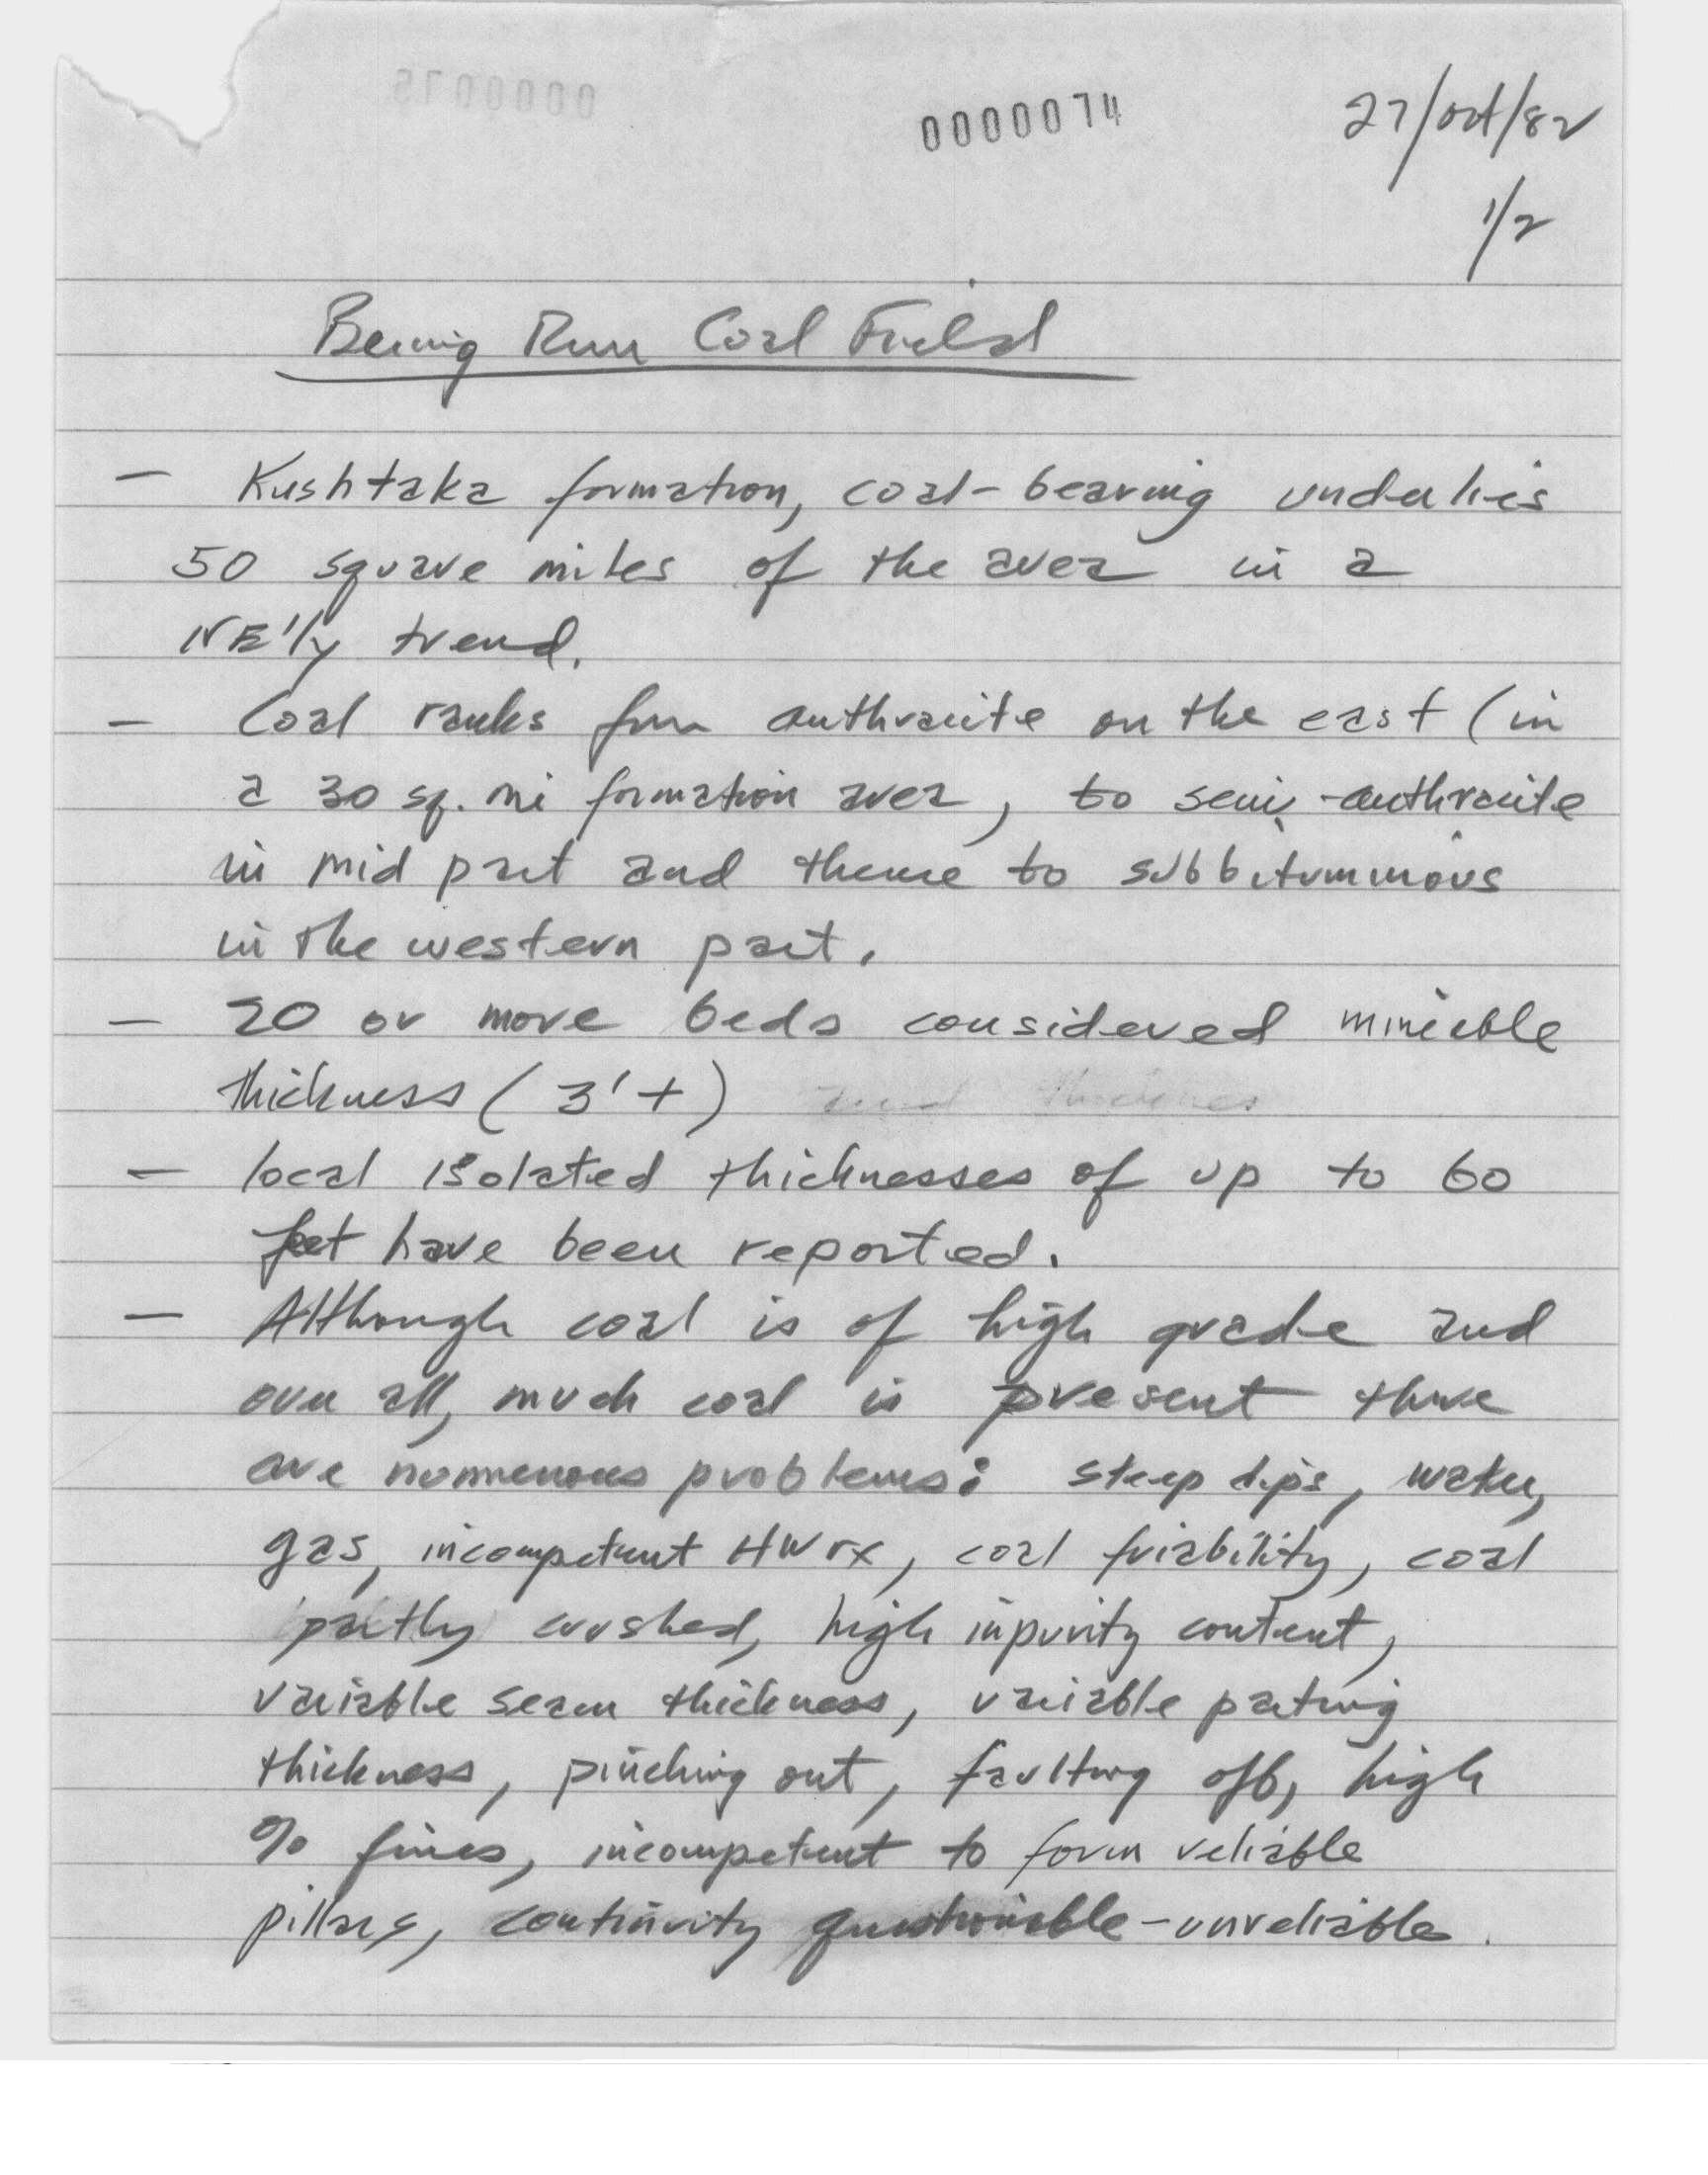 0000074
27/Oct/82
1/2
Bering River Coal Field
— Kushtaka formation, coal-bearing underlies
50 square miles of the area in a
NE'ly trend.
— Coal ranks from anthracite on the east (in
a 30 sq. mi formation area, to semi-anthracite
in mid part and thence to subbituminous
in the western part.
— 20 or more beds considered mineable
thickness (3'+)
— local isolated thicknesses of up to 60
feet have been reported.
— Although coal is of high grade and
over all, much coal is present there
are nummerous problems: steep dips, water,
gas, incompetent HW rx, coal friability, coal
partly crushed, high inpurity content,
variable seam thickness, variable parting
thickness, pinching out, faulting off, high
% fines, incompetent to form reliable
pillars, continuity questionable-unreliable.